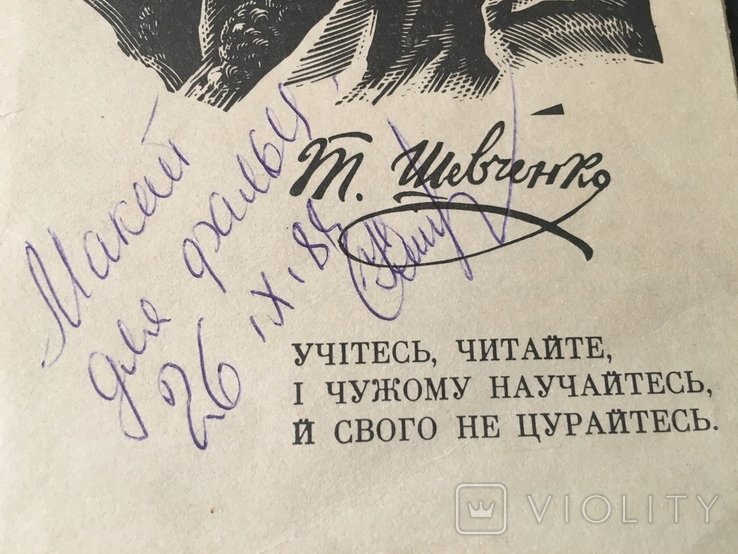 Макет
для фальц.
26.IX.88
Т. Шевченко
УЧІТЕСЬ, ЧИТАЙТЕ,
І ЧУЖОМУ НАУЧАЙТЕСЬ,
Й СВОГО НЕ ЦУРАЙТЕСЬ.
VIOLITY